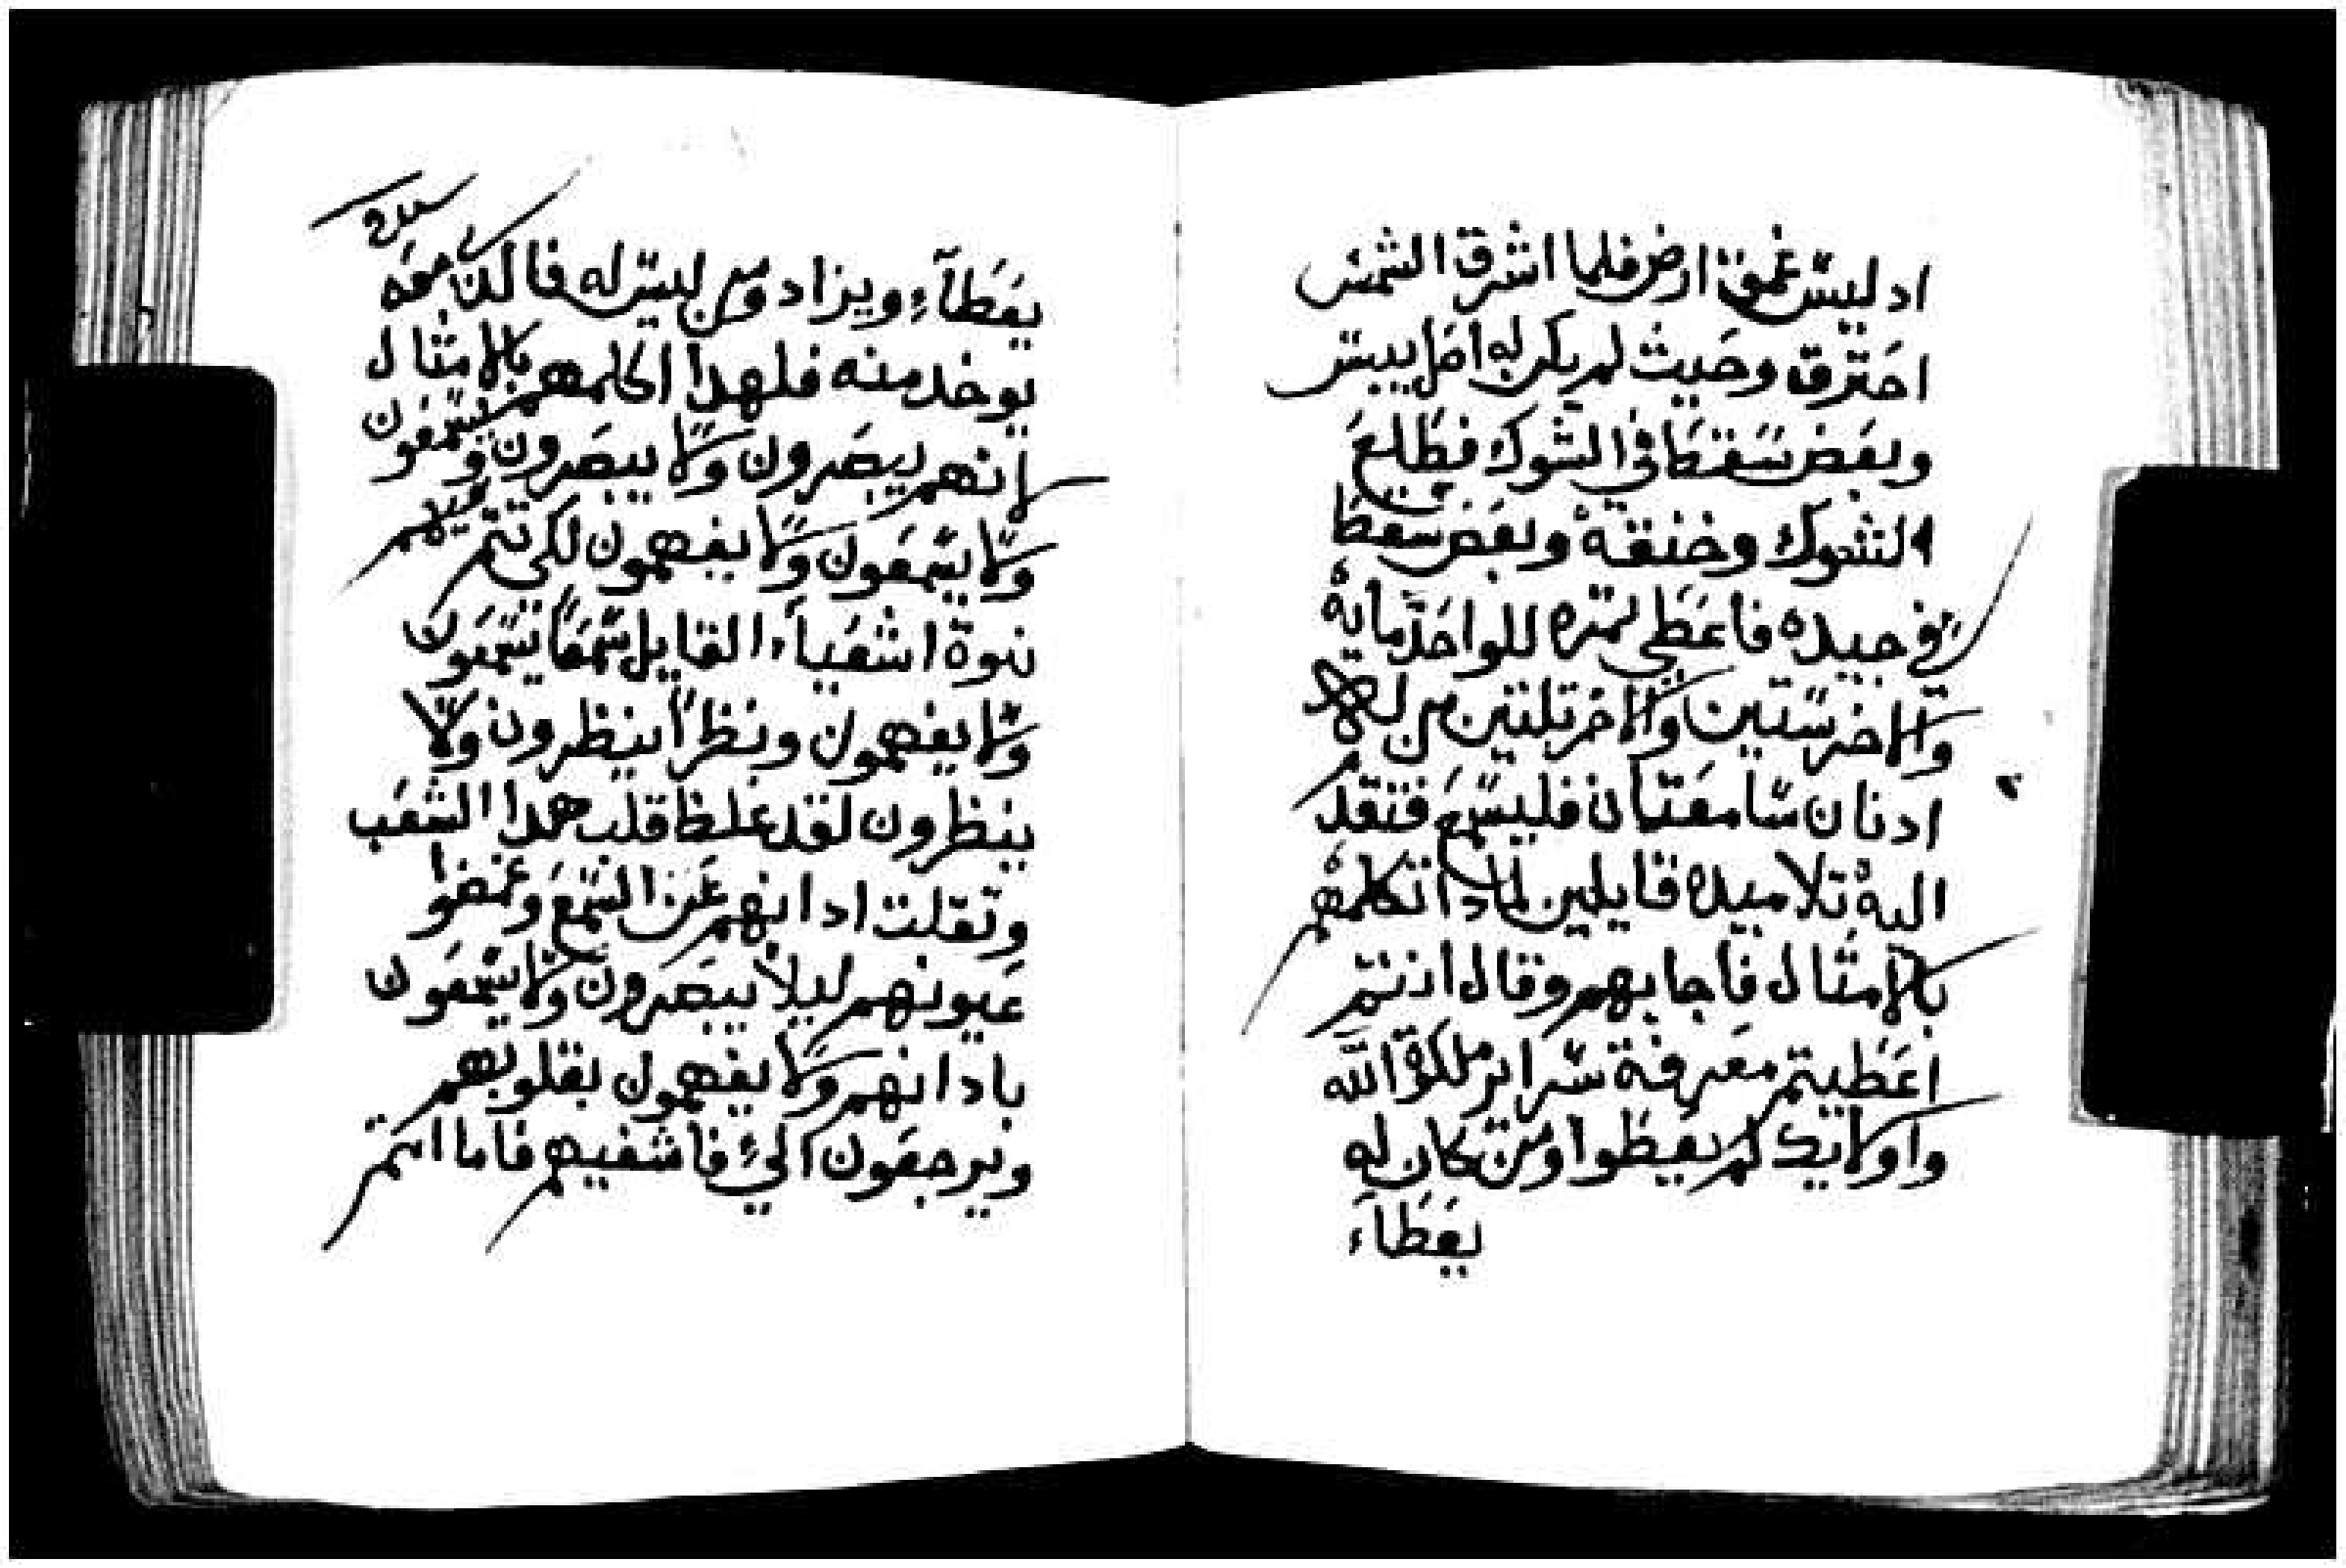 اد ليس عمق ارض فلما اشرق الشمس
احترق وحيث لم يكن له اصل يبس
وبعض سقط في الشوك فطلع
الشوك وخنقه وبعض سقط
في جيده فاعطي تمره للواحد مايه
والاخر ستين والاخر تلتين من له
ادنان سامعتان فليسمع فتقدم
اليه تلاميده قايلين لمادا تكلمهم
بالامثال فاجابهم وقال انتم
اعطيتم معرفة سراير ملكوة الله
واولايك لم يعطوا ومن كان له
يعطاء
يعطاء ويزاد ومن ليس له فالدي معه
يوخد منه فلهدا اكلمهم بالامثال
لانهم يبصرون ولا يبصرون ويسمعون
ولا يسمعون ولا يفهمون لكي تتم فيهم
نبوة اشعياء القايل سمعا يسمعون
ولا يفهمون ونظرا ينظرون ولا
ينظرون لقد غلظ قلب هدا الشعب
وتقلت ادانهم عن السمع وغمضوا
عيونهم ليلا يبصرون ولا يسمعون
بادانهم ولا يفهمون بقلوبهم
ويرجعون الي فاشفيهم فاما انتم